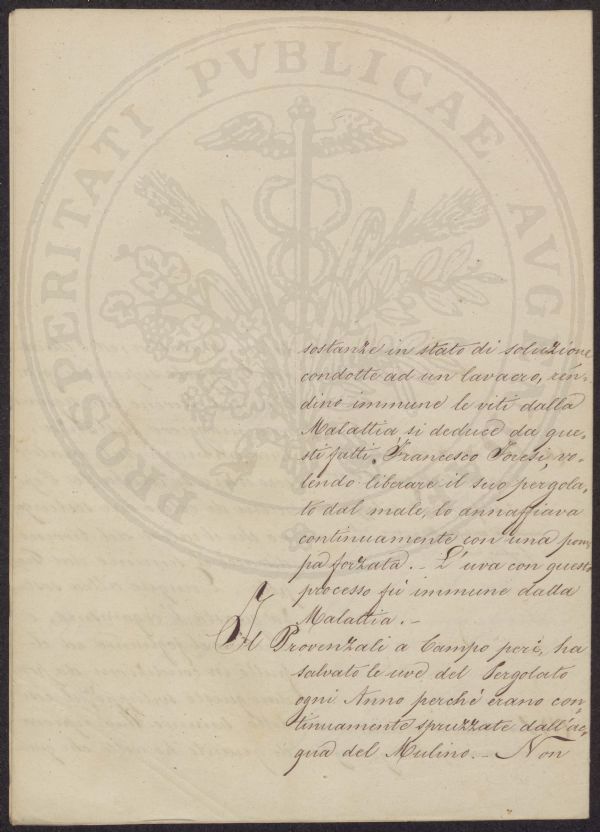 PROSPERITATI PVBLICAE AVGE
sostanze in stato di soluzione
condotte ad un lavacro, ren-
dino immune le viti dalla
Malattia si deduce da que-
sti fatti. Francesco vo-
lendo liberare il suo pergola-
to dal male, lo annaffiava
continuamente con una pom-
pa forzata. - L'uva con questo
processo fu immune dalla
Malattia. -
Il Provenzali a Campo peri, ha
salvato le uve del Pergolato
ogni Anno perché erano con-
tinuamente spruzzate dall'ac-
qua del Mulino. - Non